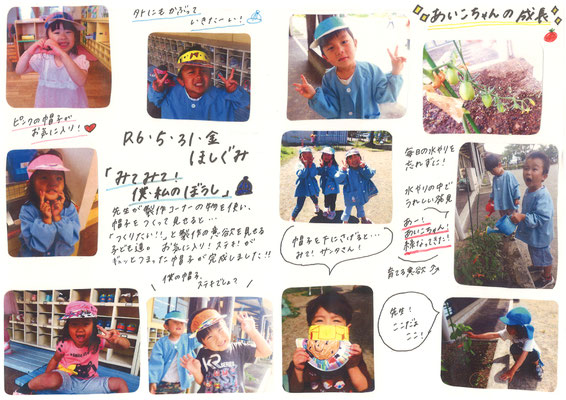 外にもかぶって
いきたーい！
ピンクの帽子が
お気に入り！
R6.5.31.金
ほしぐみ
「みてみて！
僕・私のぼうし」
先生が製作コーナーの物を使い、
帽子をつくって見せると…
「つくりたい！！」と製作の意欲を見せる
子ども達。 お気に入り！ステキ！が
ギュッとつまった帽子が完成しました!!
僕の帽子、
ステキでしょ？
あいこちゃんの成長
毎日の水やりを
忘れずに！
水やりの中で
うれしい発見
あー！
あいこちゃん、
緑になってきた！
育てる意欲
帽子を下にさげると…
みて！サンタさん！
先生！
ここだよ
ここ！